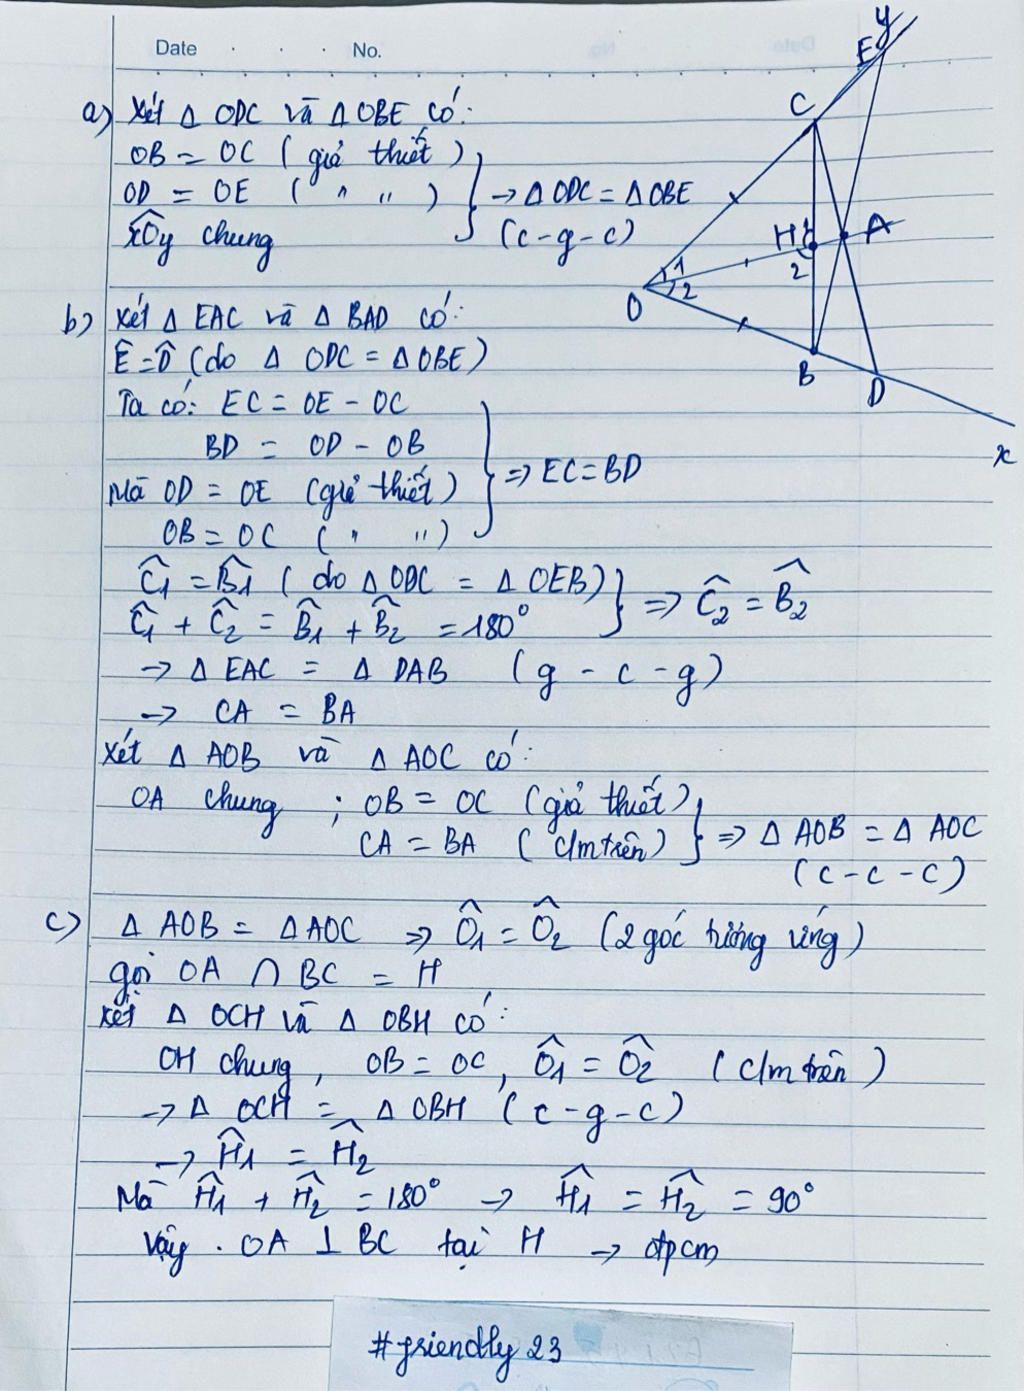 Date . . . No.
a) Xét Δ ODC và Δ OBE có:
OB = OC ( giả thiết )
OD = OE ( " " ) } → Δ ODC = Δ OBE
xOy chung (c-g-c)
b) Xét Δ EAC và Δ BAD có:
Ê = D̂ (do Δ ODC = Δ OBE)
Ta có: EC = OE - OC
BD = OD - OB
Mà OD = OE (giả thiết) } => EC = BD
OB = OC ( " " )
Ĉ1 = B̂1 ( do Δ ODC = Δ OEB)
Ĉ1 + Ĉ2 = B̂1 + B̂2 = 180° } => Ĉ2 = B̂2
→ Δ EAC = Δ DAB (g - c - g)
→ CA = BA
Xét Δ AOB và Δ AOC có:
OA chung ; OB = OC (giả thiết)
CA = BA ( c/m trên) } => Δ AOB = Δ AOC
(c-c-c)
c) Δ AOB = Δ AOC => Ô1 = Ô2 (2 góc tương ứng)
gọi OA ∩ BC = H
Xét Δ OCH và Δ OBH có:
OH chung, OB = OC, Ô1 = Ô2 ( c/m trên )
→ Δ OCH = Δ OBH ( c-g-c)
→ Ĥ1 = Ĥ2
Mà Ĥ1 + Ĥ2 = 180° → Ĥ1 = Ĥ2 = 90°
Vậy . OA ⊥ BC tại H → đpcm
y
E
C
H 1
A
2
O
1
2
B
D
x
#friendly 23